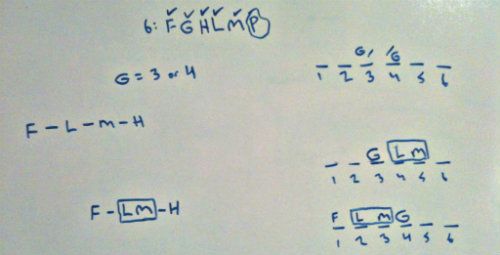 6: F G H L M P
G = 3 or 4
G/ /G
1 2 3 4 5 6
F - L - M - H
G L M
1 2 3 4 5 6
F - LM - H
F L M G
1 2 3 4 5 6